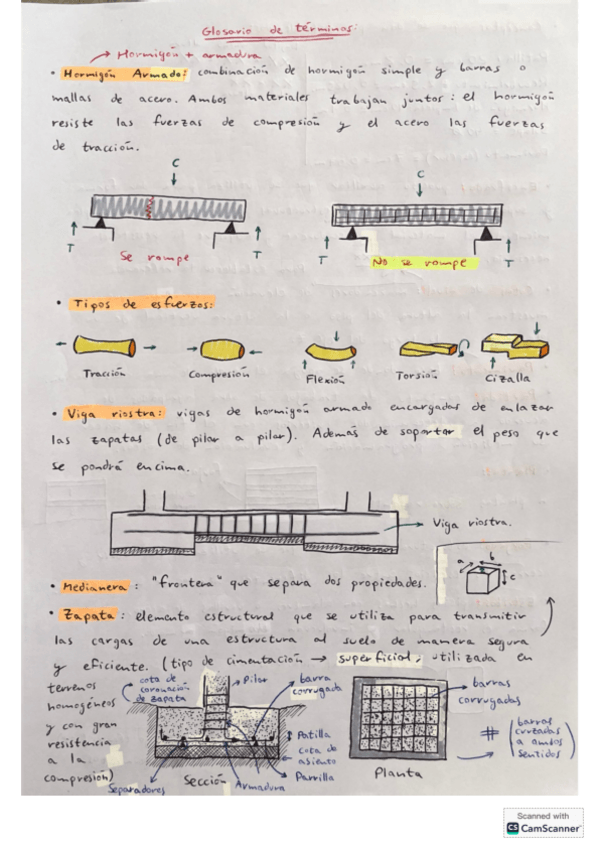 Glosario de términos.
→ Hormigón + armadura
• Hormigón Armado: combinación de hormigón simple y barras o
mallas de acero. Ambos materiales trabajan juntos: el hormigón
resiste las fuerzas de compresión y el acero las fuerzas
de tracción.
C
C
T
T
T
T
Se rompe
No se rompe
• Tipos de esfuerzos:
Tracción
Compresión
Flexión
Torsión
Cizalla
• Viga riostra: vigas de hormigón armado encargadas de enlazar
las zapatas (de pilar a pilar). Además de soportar el peso que
se pondrá encima.
Viga riostra.
• Medianera: "frontera" que separa dos propiedades.
a
b
c
• Zapata: elemento estructural que se utiliza para transmitir
las cargas de una estructura al suelo de manera segura
y eficiente. (tipo de cimentación → superficial, utilizada en
terrenos
homogéneos
y con gran
resistencia
a la
compresión)
cota de
coronación
de zapata
Pilar
barra
corrugada
Patilla
cota de
asiento
Parrilla
Separadores
Sección
Armadura
Planta
barras
corrugadas
# (barras
cruzadas
a ambos
sentidos)
Scanned with
CS CamScanner